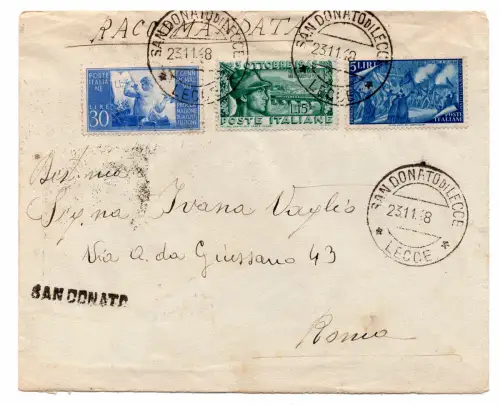 RACCOMANDATA
SAN DONATO DI LECCE
23.11.48
* LECCE *
SAN DONATO DI LECCE
23.11.48
* LECCE *
POSTE ITALIANE
LIRE 30
OTTOBRE
L.15
POSTE ITALIANE
5 LIRE
POSTE ITALIANE
SAN DONATO DI LECCE
23.11.48
* LECCE *
Sig.na Ivana Vaglio
Via A. da Giussano 43
SAN DONATO
Roma